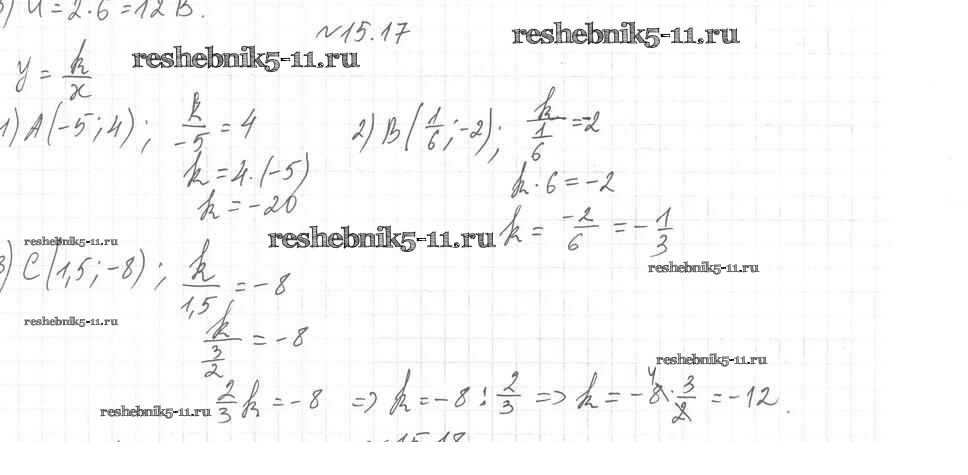 ) U = 2 · 6 = 12 В.
№ 15.17
reshebnik5-11.ru
reshebnik5-11.ru
y = k/x
1) A(-5; 4); k/-5 = 4
k = 4 · (-5)
k = -20
2) B(1/6; -2); k/(1/6) = -2
k · 6 = -2
k = -2/6 = -1/3
reshebnik5-11.ru
reshebnik5-11.ru
reshebnik5-11.ru
3) C(1,5; -8); k/1,5 = -8
reshebnik5-11.ru
k/(3/2) = -8
reshebnik5-11.ru
2/3 k = -8 => k = -8 : 2/3 => k = -8 · 3/2 = -12.
reshebnik5-11.ru
№ 15.18